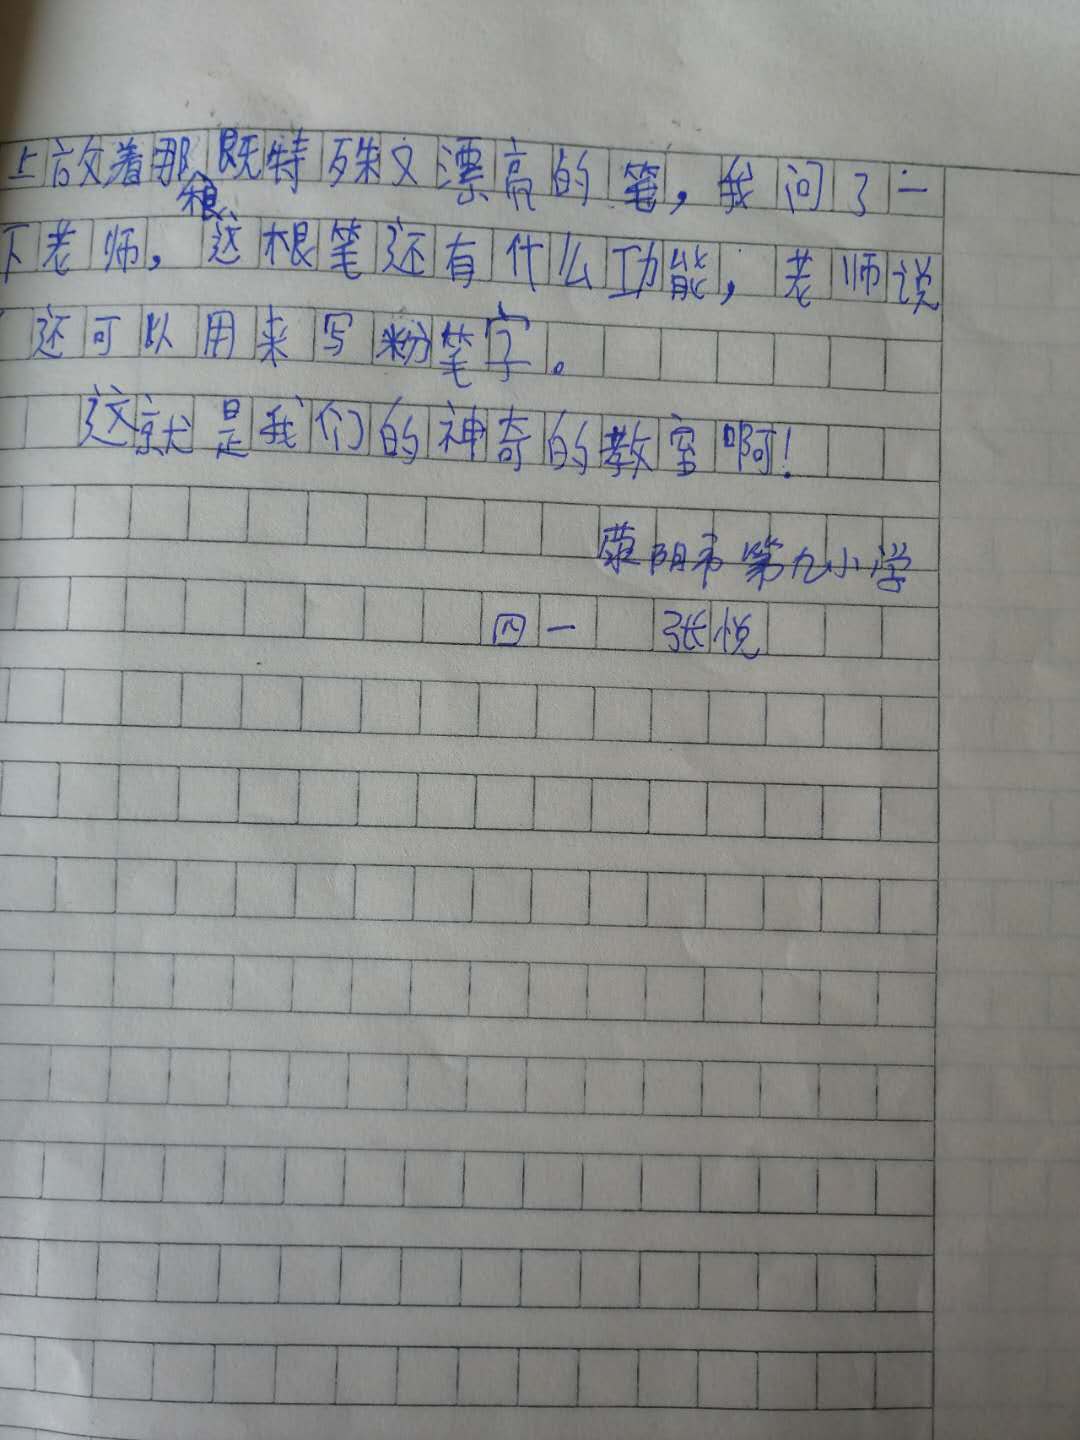 上放着那根既特殊又漂亮的笔，我问了一
下老师，这根笔还有什么功能，老师说
还可以用来写粉笔字。
这就是我们的神奇的教室啊！
荥阳市第九小学
四一 张悦